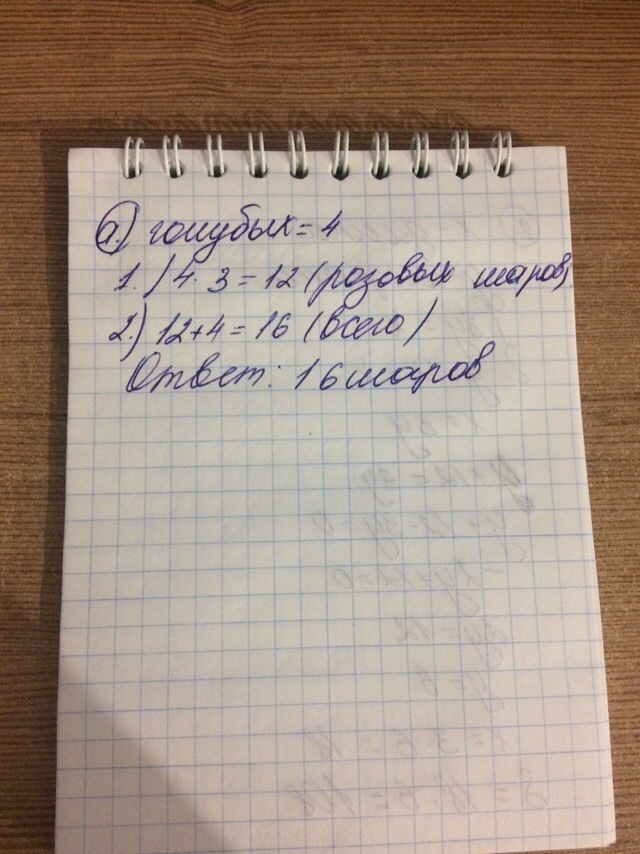 а.) голубых = 4
1.) 4 · 3 = 12 (розовых шаров)
2.) 12 + 4 = 16 (всего)
Ответ: 16 шаров